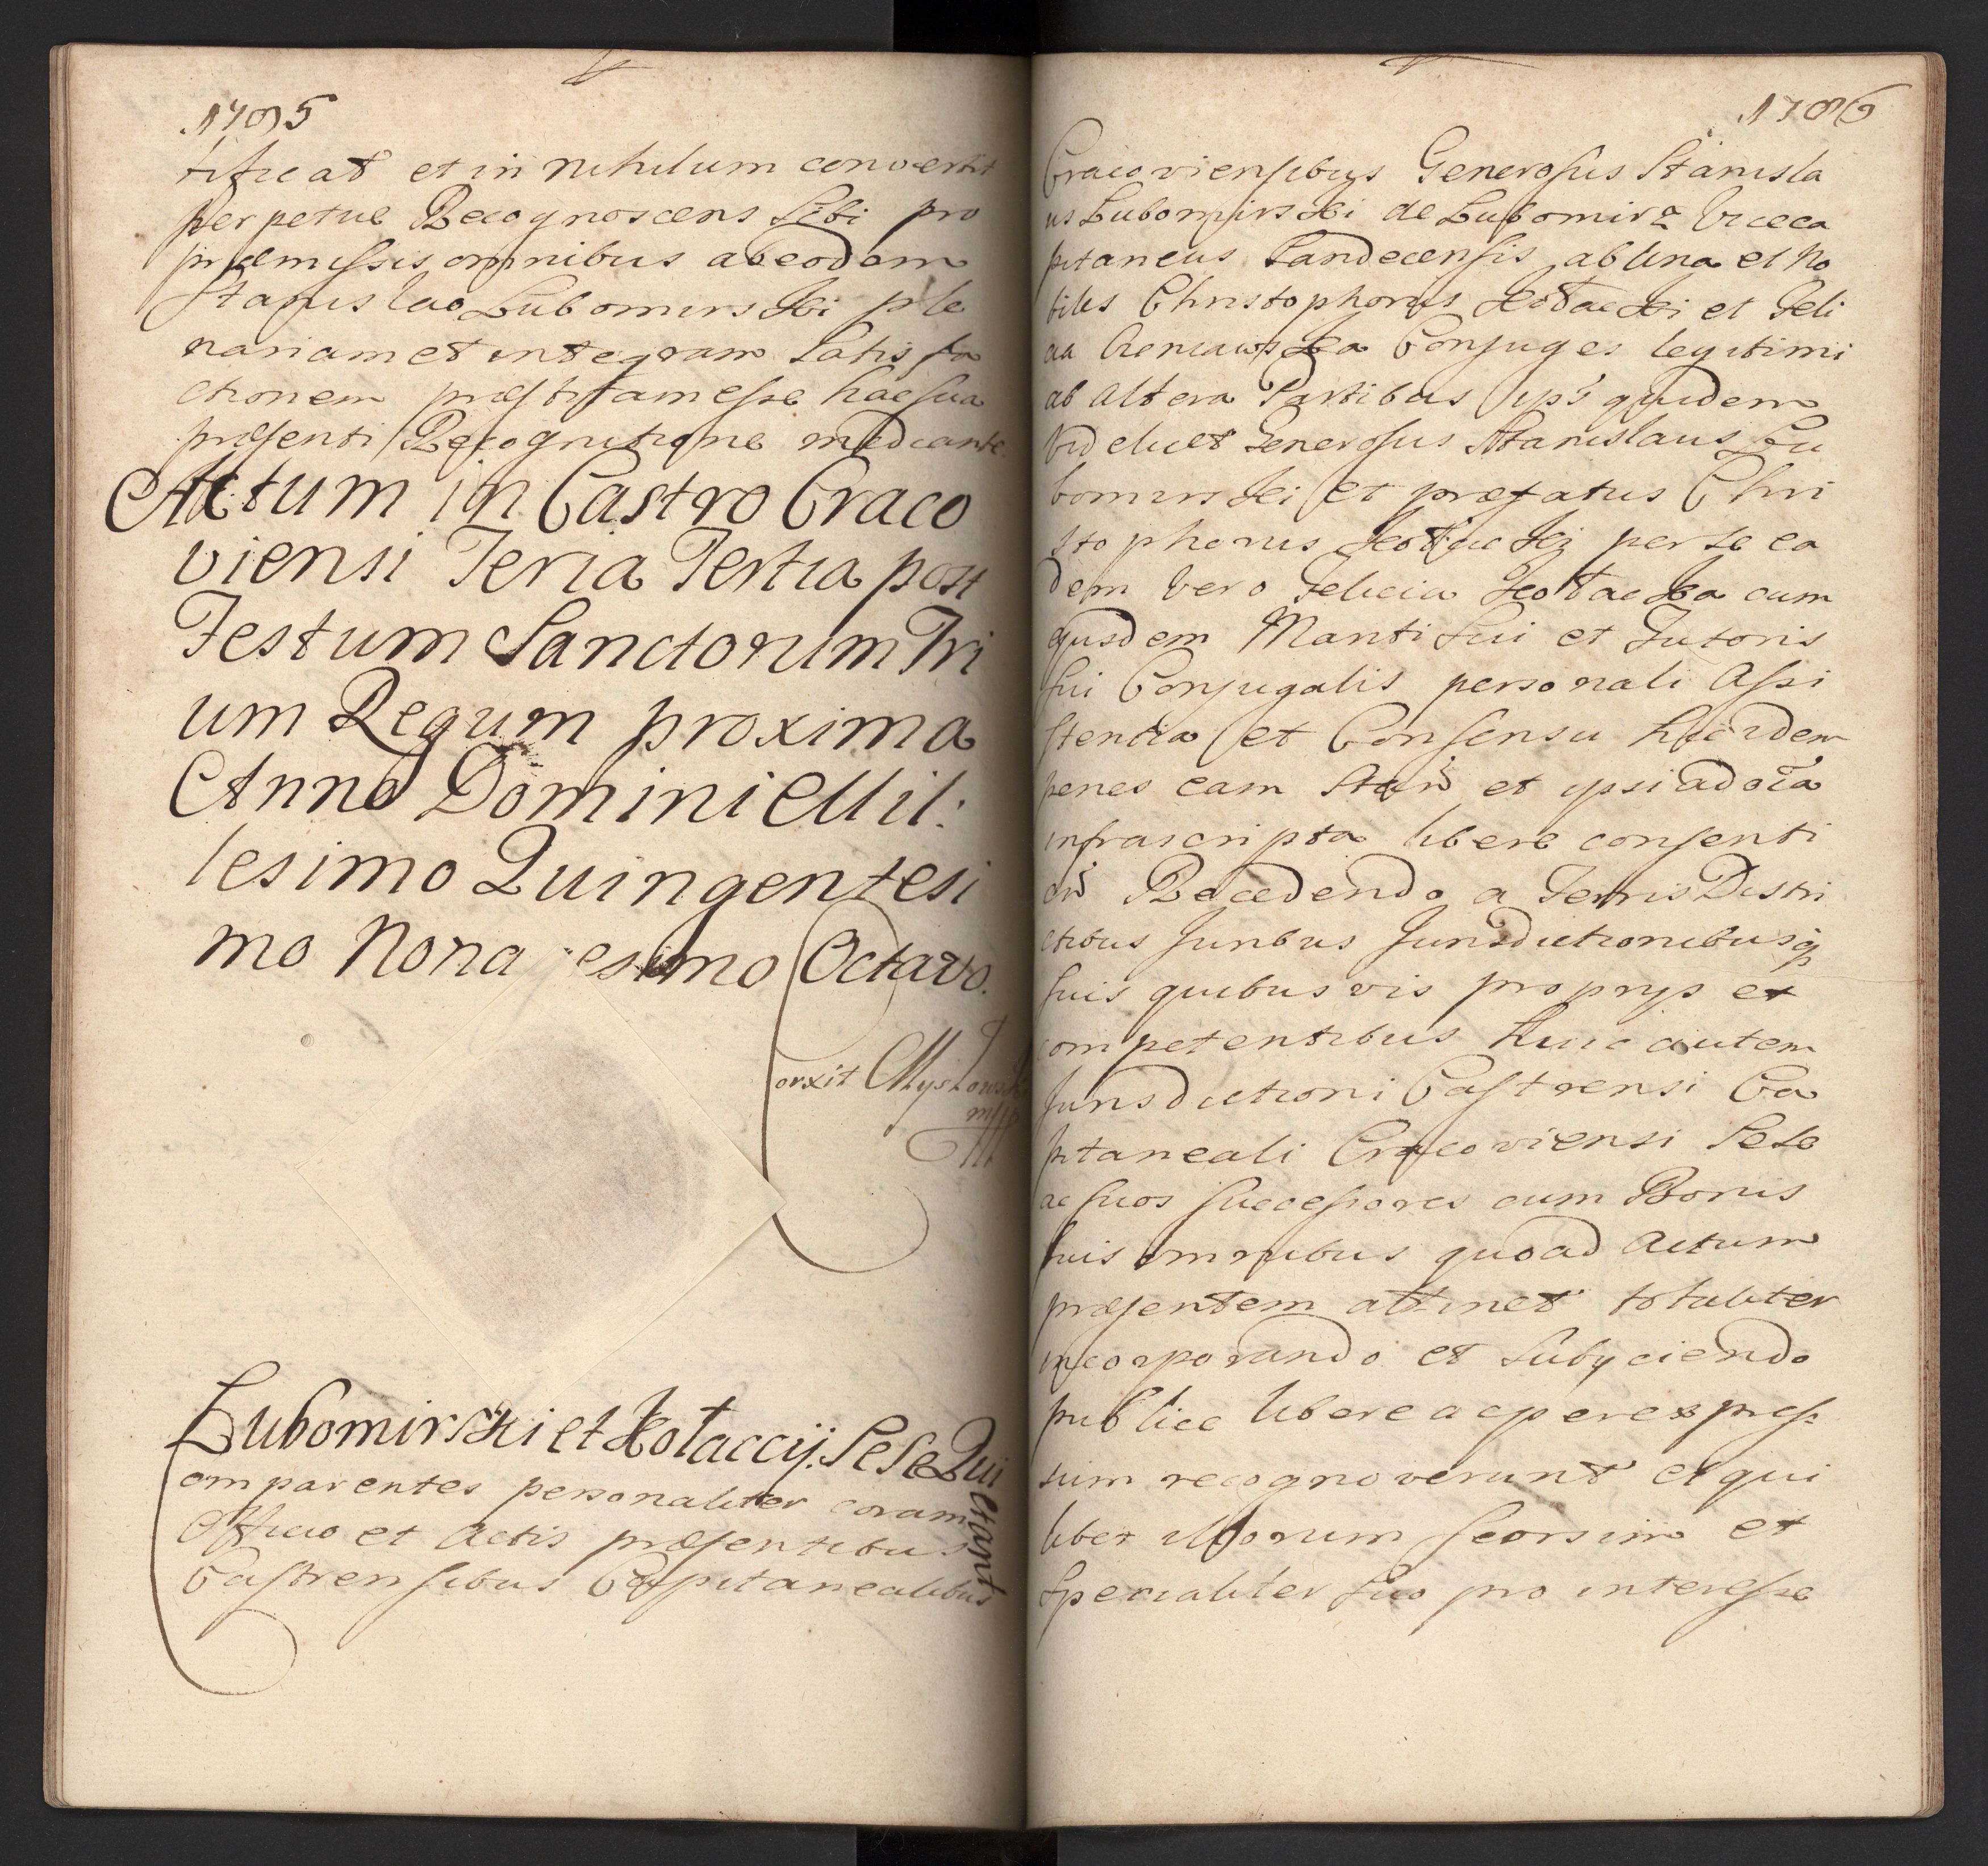 1785
tificat et in nihilum convertit
perpetue Recognoscens Sibi pro
præmissis omnibus ab eodem
Stanislao Lubomirski ple
nariam et integram Satisfa
ctionem præstitam esse hac sua
præsenti Recognitione mediante.
Actum in Castro Craco
viensi Feria Tertia post
Festum Sanctorum Tri
um Regum proxima
Anno Domini Mil:
lesimo Quingentesi
mo Nona esimo Octavo.
orxit
mpp
Lubomirski et Kotaccÿ. Sese Qui
etant
omparentes personaliter coram
Officio et Actis præsentibus
Castrensibus Capitanealibus
1786
Cracoviensibus Generosus Stanisla
us Lubomirski de Lubomirz Viceca
pitaneus Sandecensis ab una et No
biles Christophorus Kotacki et Feli
cia Conjuges legitimi
ab altera Partibus ips̃ quidem
Videlicet Generosus Stanislaus Lu
bomirski et præfatus Chri
stophorus Kotacki per se ea
dem vero Felicia Kotacka cum
ejusdem Mariti sui et Tutoris
sui Conjugalis personali Assi
stentia et Consensu hic idem
penes eam Stan̄ et ipsi ad oīa
infrascripta libere consenti
en̄ Recedendo a Terris Distri
ctibus Juribus Jurisdictionibusq̃
suis quibusvis propryis et
competentibus huic autem
Jurisdictioni Castrensi Ca
pitaneali Cracoviensi Sese
ac suos successores cum Bonis
suis omnibus quoad Actum
præsentem attinet totaliter
incorporando et subyciendo
publice libere ac per expres
sum recognoverunt et qui
libet illorum seorsim et
specialiter suo pro interesse